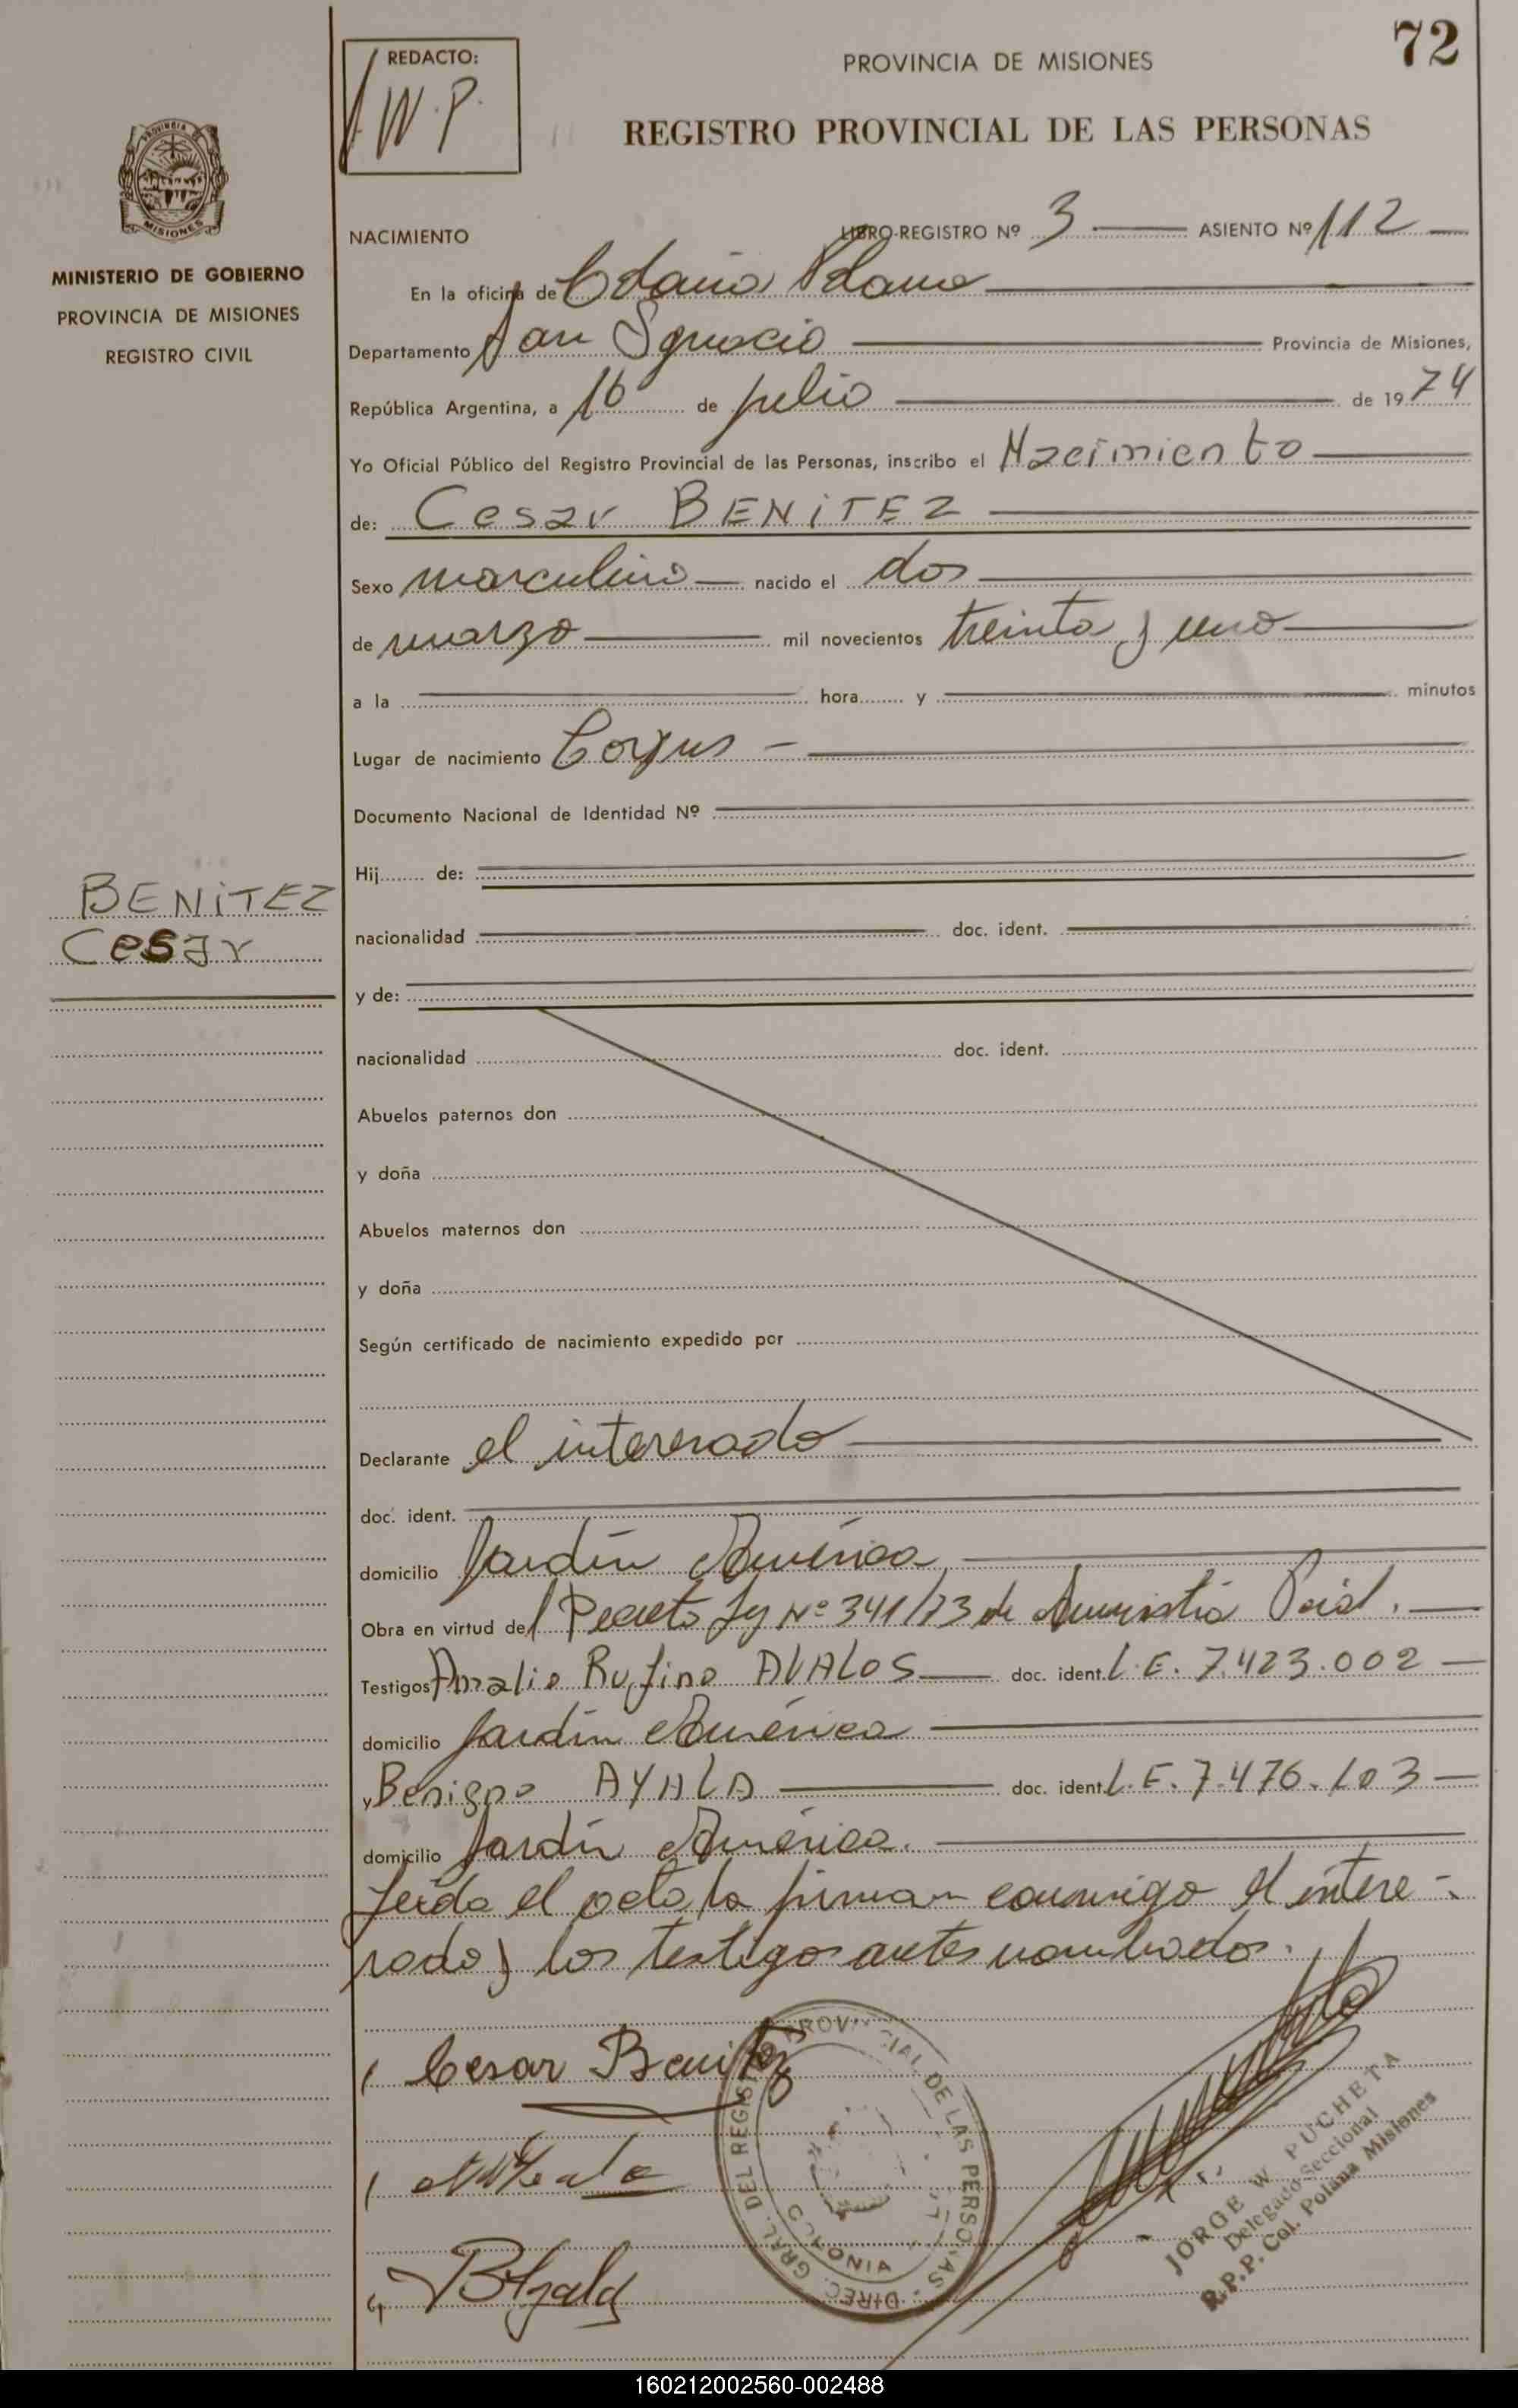 72
REDACTO:
W.P.
PROVINCIA DE MISIONES
REGISTRO PROVINCIAL DE LAS PERSONAS
MISIONES
MINISTERIO DE GOBIERNO
PROVINCIA DE MISIONES
REGISTRO CIVIL
NACIMIENTO LIBRO-REGISTRO Nº 3 ASIENTO Nº 112
En la oficina de Colonia Polana
Departamento San Ignacio Provincia de Misiones,
República Argentina, a 16 de julio de 1974
Yo Oficial Público del Registro Provincial de las Personas, inscribo el Nacimiento
de: Cesar BENITEZ
Sexo masculino nacido el dos
de marzo mil novecientos treinta y uno
a la hora y minutos
Lugar de nacimiento Corpus
Documento Nacional de Identidad Nº
Hij de:
BENITEZ
Cesar
nacionalidad doc. ident.
y de:
nacionalidad doc. ident.
Abuelos paternos don
y doña
Abuelos maternos don
y doña
Según certificado de nacimiento expedido por
Declarante el interesado
doc. ident.
domicilio Jardín América
Obra en virtud del Decreto Ley Nº 341/73 de Amnistía
Testigos Amalio Rufino AVALOS doc. ident. L.E. 7.423.002
domicilio Jardín América
y Benigno AYALA doc. ident. L.E. 7.476.103
domicilio Jardín América.
Leida el acta la firman conmigo el intere-
sado y los testigos antes nombrados.
Cesar Benitez
DIREC. GRAL. DEL REGISTRO PROVINCIAL DE LAS PERSONAS
COLONIA
JORGE W. PUCHETA
Delegado Seccional
R.P.P. Col. Polana Misiones
160212002560-002488